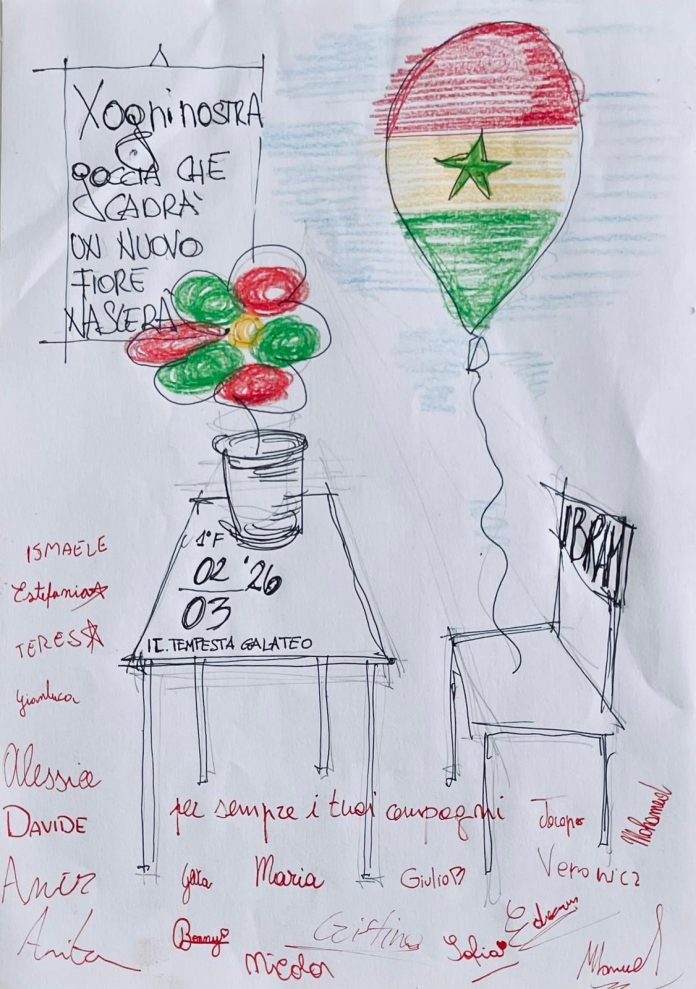 Xogni NOSTRA
gOCCIA CHE
CADRÀ
UN NUOVO
FIORE
NASCERÀ
1°F
02 '26
03
IC. TEMPESTA GALATEO
IBRAM
ISMAELE
Estefania
TERESA
Gianluca
Alessia
DAVIDE
Anita
per sempre i tuoi compagni
Jacopo
Mohamed
Maria
Giulio
Veronica
Benny
Cristina
Sofia
Nicolas
Manuel